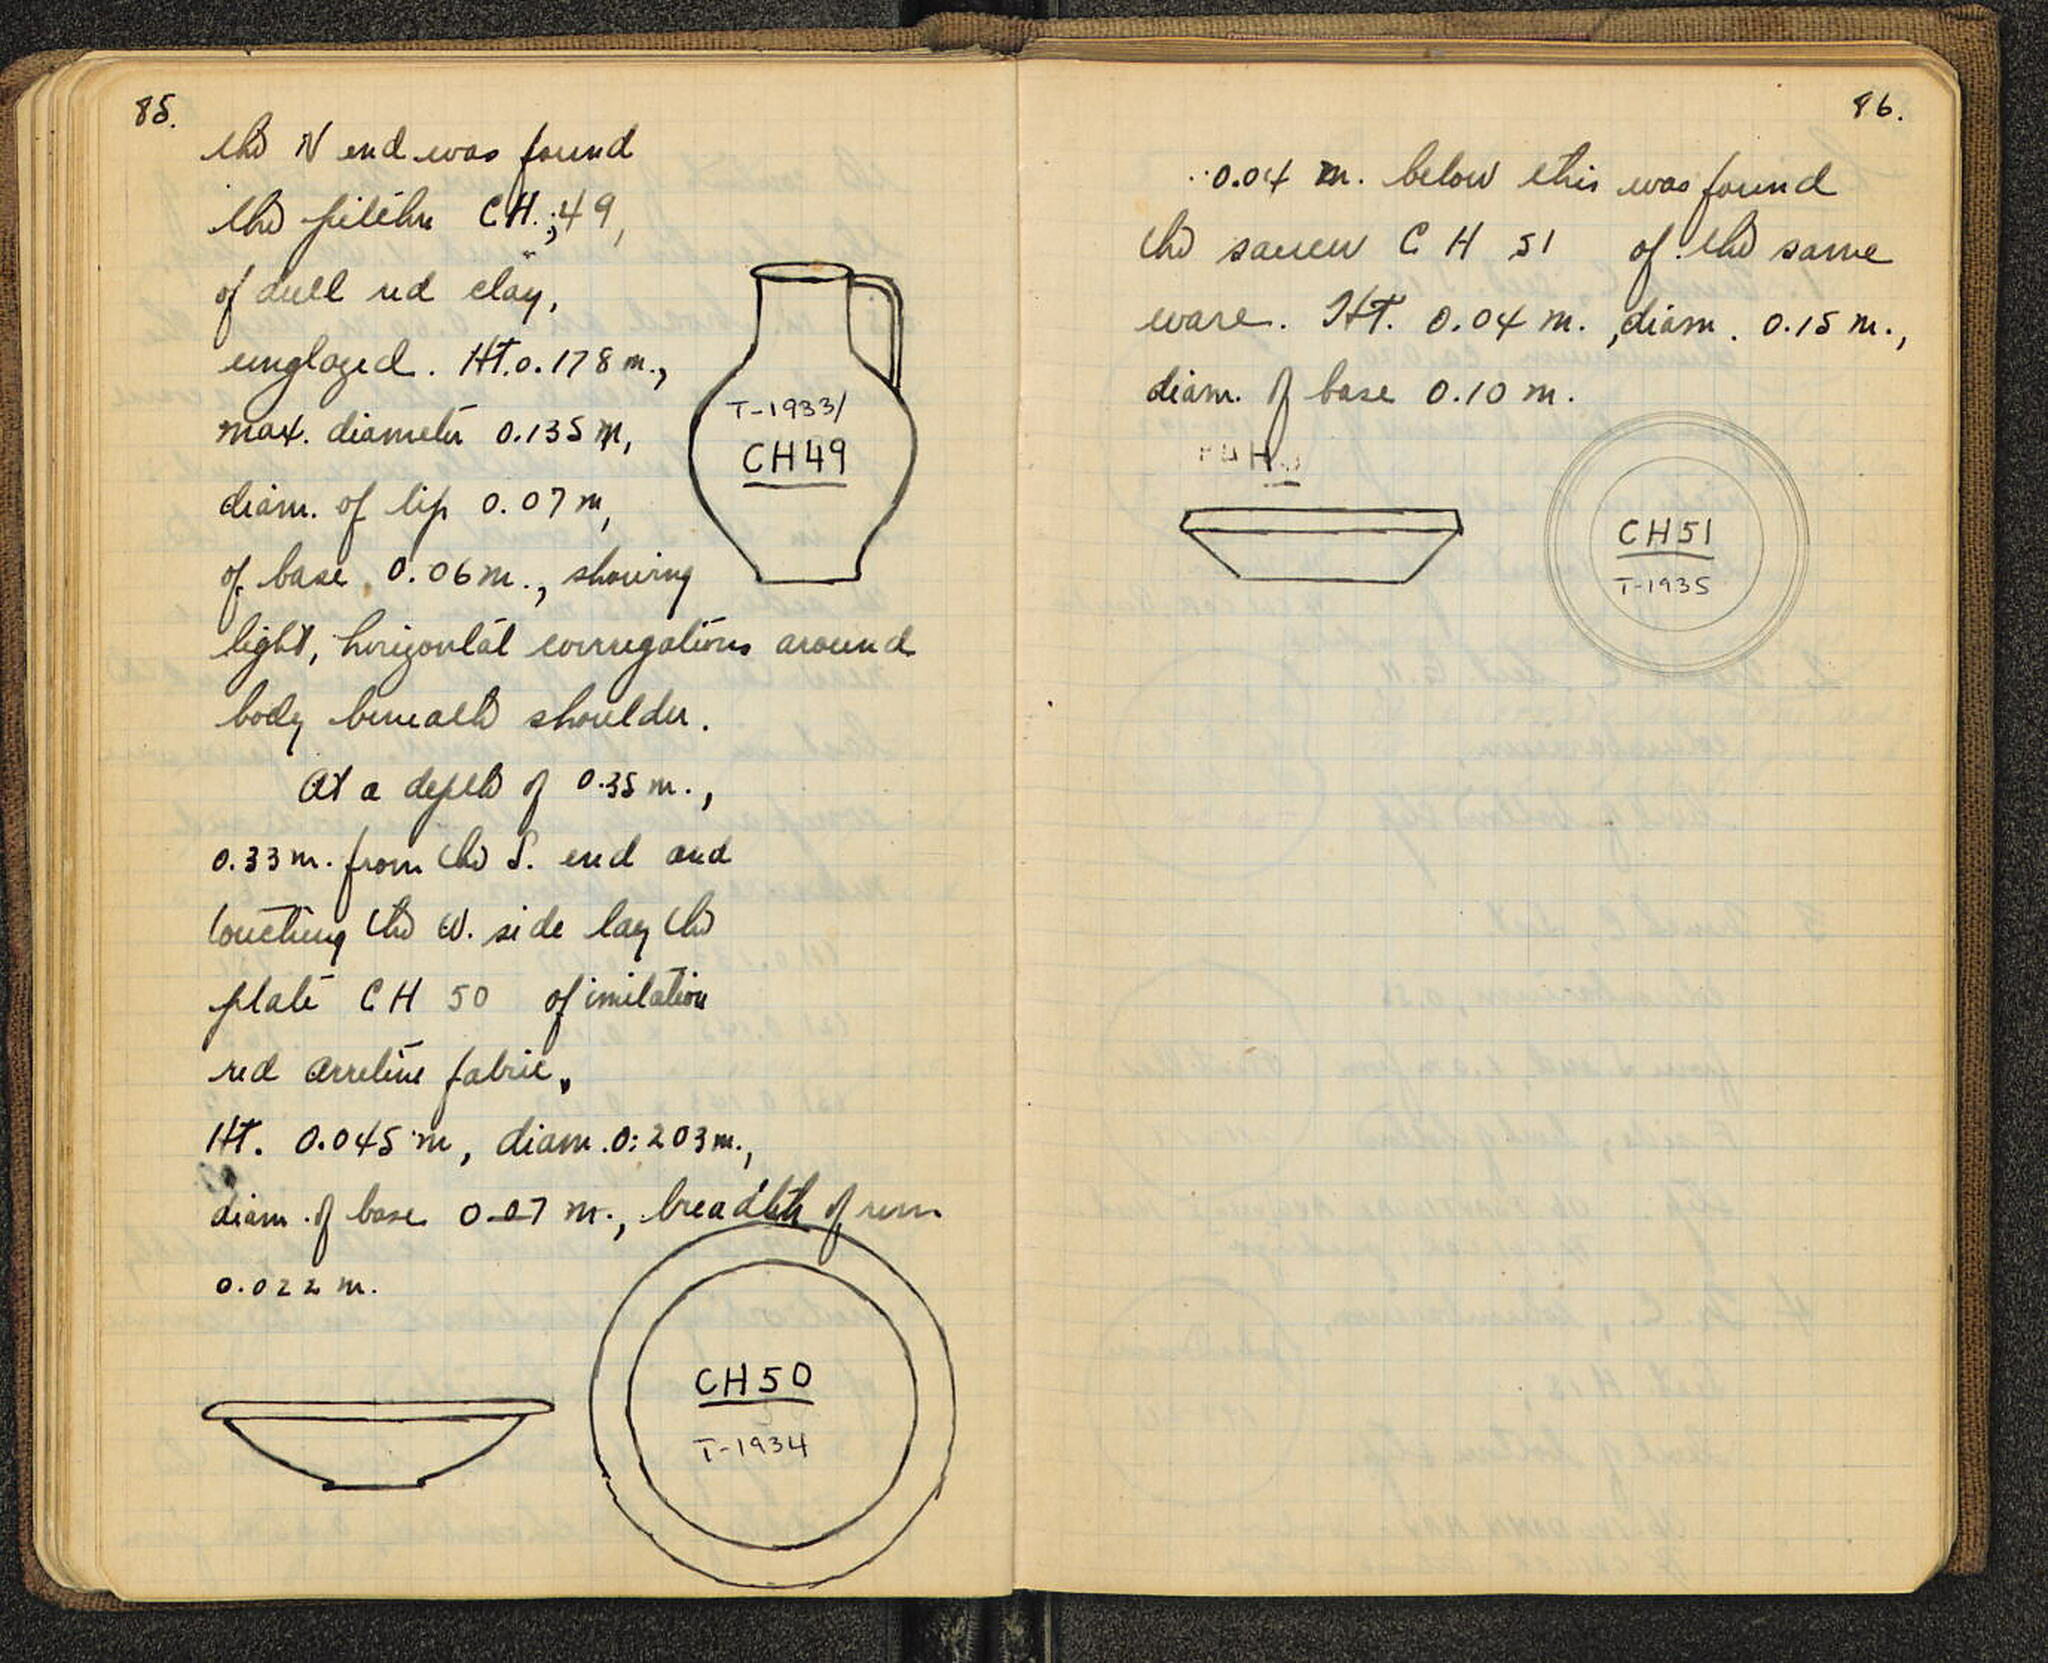 85.
the N end was found
the pitcher CH. 49,
of dull red clay,
unglazed. Ht. 0.178 m.,
max. diameter 0.135 m,
diam. of lip 0.07 m,
of base 0.06 m., showing
light, horizontal corrugations around
body beneath shoulder.
T-1933/
CH49
At a depth of 0.35 m.,
0.33 m. from the S. end and
touching the W. side lay the
plate CH 50 of imitation
red Arretine fabric,
Ht. 0.045 m, diam. 0.203 m.,
diam. of base 0.07 m., breadth of rim
0.022 m.
CH50
T-1934
86.
0.04 m. below this was found
the saucer CH 51 of the same
ware. Ht. 0.04 m., diam. 0.15 m.,
diam. of base 0.10 m.
CH51
T-1935